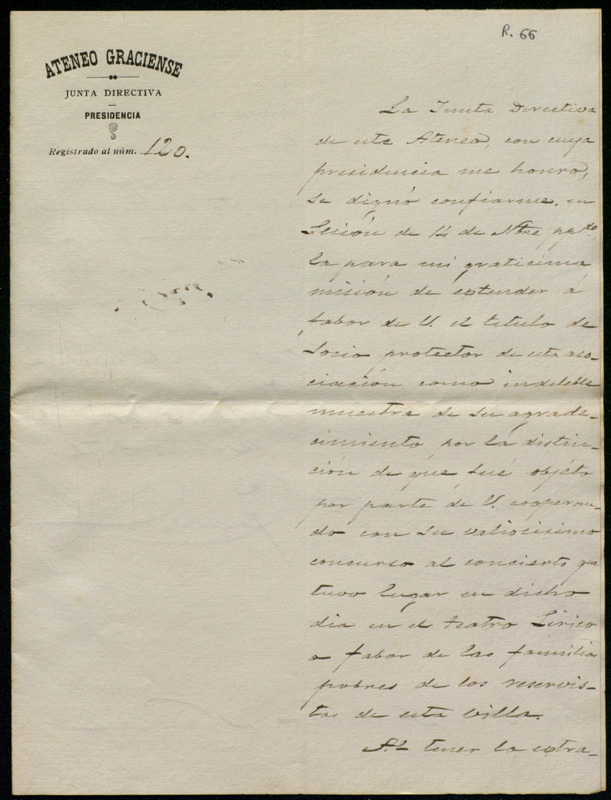 R. 66
ATENEO GRACIENSE
JUNTA DIRECTIVA
PRESIDENCIA
Registrado al núm. 120.
La Junta Directiva
de este Ateneo, con cuya
presidencia me honro,
se dignó confiarme, en
Sesión de 12 de Nbre ppdo,
la para mi gratisima
misión de extender á
fabor de V. el titulo de
Socio protector de esta aso-
ciación como indeleble
muestra de su agrade-
cimiento por la distin-
ción de que fue objéto
por parte de V. cooperan-
do con su valiosisimo
concurso al concierto que
tuvo lugar en dicho
dia en el teatro Lirico
a fabor de las familias
pobres de los reservis-
tas de esta villa.
Al tener la extra-